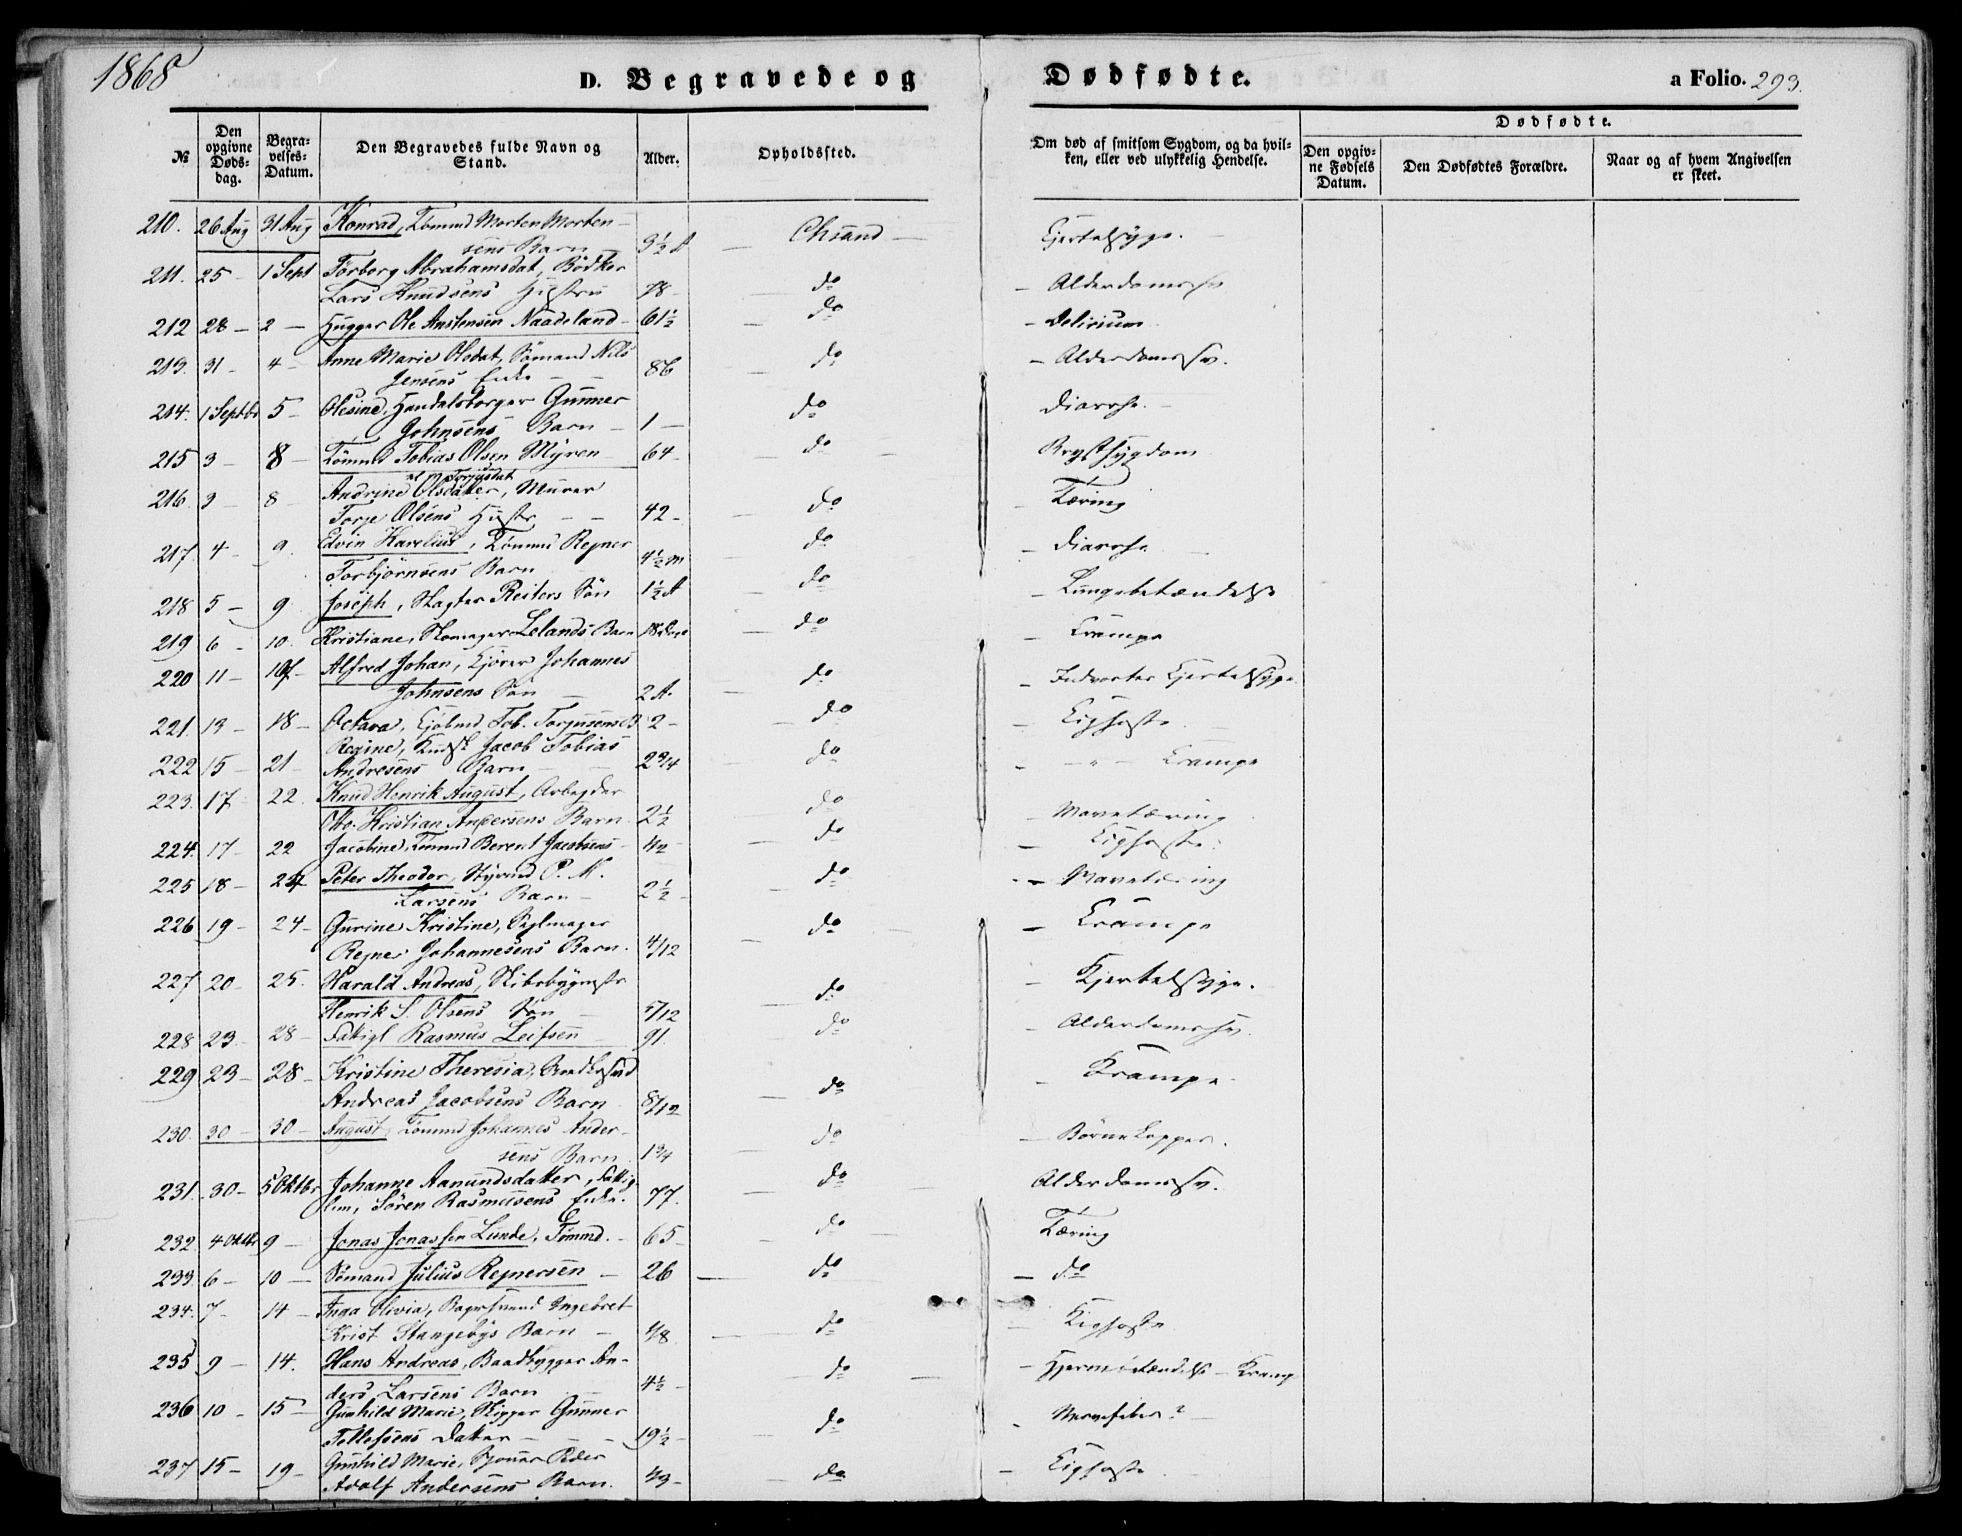 1868
D. Begravede og Dødfødte.
a Folio. 293.
№
Den opgivne Døds-dag.
Begra-velses-Datum.
Den Begravedes fulde Navn og Stand.
Alder.
Opholdssted.
Om død af smitsom Sygdom, og da hvil-
ken, eller ved ulykkelig Hendelse.
Dødfødte.
Den opgiv-ne Fødsels Datum.
Den Dødfødtes Forældre.
Naar og af hvem Angivelsen er skeet.
210. 26 Aug 31 Aug Konrad, Tømmd Morten Morten-
sens Barn 3½ A — Chsand — Kjertelsyge.
211. 25 - 1 Sept Torborg Abrahamsdat, Bødker
Lars Knudsens Hustru 78 - do - Alderdomssv
212 28 - 2 - Hugger Ole Anstensen Naadeland - 61½ do - Delirium
213. 31 - 4 - Anne Marie Olsdat, Sømand Nils
Jensens Enke - 86 do - Alderdomssv.
214. 1 Septbr 5 - Olesine, Handelsborger Gunner
Johnsens Barn - 1 - do Diarrhe. -
215 3 - 8 - Tømmd Tobias Olsen Myren 64 - do Brystsygdom
216 3 - 8 - Andrine Olsdatter, Murer
Torjusdat
Torje Olsens Hustr - - 42 - do - Tæring
217 4 - 9. Edvin Karelius, Tømmd Rejner
Torbjørnsens Barn 4½ m do - Diarrhe
218 5 - 9 Joseph, Slagter Reiters Søn 1½ A do - Lungebetændelse
219 6 - 10. Kristiane, Skomager Lelands Barn 18 Dage do - Krampe
220 11 - 17 - Alfred Johan, Kjører Johannes
Johnsens Søn 2 A. do - Indvortes Kjertelsyge
221 13 - 18 - Octava, Kjøbmd Tob. Torjusens B 2 - do - Kighoste
222 15 - 21 - Regine, Jacob Tobias
Andresens Barn - 2 3/4 do - - " - Krampe
223. 17 - 22. Knud Henrik August, Arbejder
Otto Kristian Andersens Barn. 2½ do - Mavetæring
224. 17 - 22 Jacobine, Tømmd Berent Jacobsens - 4/2 - do - Kighoste.
225 18 - 24 Peter Theodor, Styrmd P. M.
Larsens Barn - 2½ - do - Mavetæring
226 19 - 24 - Gurine Kristine, Sejlmager
Rejner Johannesens Barn. 4/12 do - Krampe
227 20 - 25. Harald Andreas, Skibsbygmstr
Henrik S. Olsens Søn - 5/12 do - Kjertelsyge.
228 23 - 28 - Fattigl Rasmus Leifsen 91. do - Alderdomssv.
229 23 - 28 - Kristine Theresia,
Andreas Jacobsens Barn 8/12 do - Krampe.
230. 30 - 30 - August, Tømmd Johannes Ander-
sens Barn. 1 3/4 do - Børnekopper.
231. 30 - 5 Oktbr Johanne Aanundsdatter, Fattig-
lem, Søren Rasmusens Enke. 77. do Alderdomssv.
232. 4 Oktbr 9 - Jonas Jonassen Lunde, Tømmd. - 65 - do Tæring
233. 6 - 10 - Sømand Julius Rejnersen - 26 - do - do
234. 7 - 14 - Inga Olivia, Bagersvend Ingebret
Krist Stangebys Barn - 4/8 do Kighoste
235 9 - 14. Hans Andreas, Baadbygger An-
ders Larsens Barn 4½ - do - Hjernebetændelse - Kramp
236 10 - 15 - Gunhild Marie, Skipper Gunner
Tellefsens Datter - 19½ - do - Nervefeber?
237 15 - 19 - Gunhild Marie, Peder
Adolf Andersens Barn. 4/3 - do - Kighoste